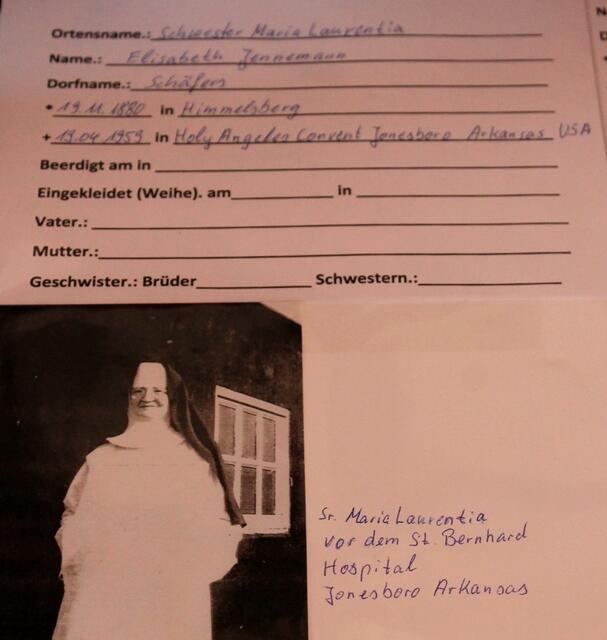 Ortensname.: Schwester Maria Laurentia
Name.: Elisabeth Jennemann
Dorfname.: Schäfers
* 19.11.1880 in Himmelsberg
+ 19.04 1959 in Holy Angeles Convent Jonesboro Arkansas USA
Beerdigt am in
Eingekleidet (Weihe). am in
Vater.:
Mutter.:
Geschwister.: Brüder Schwestern.:
Sr. Maria Laurentia
vor dem St. Bernhard
Hospital
Jonesboro Arkansas